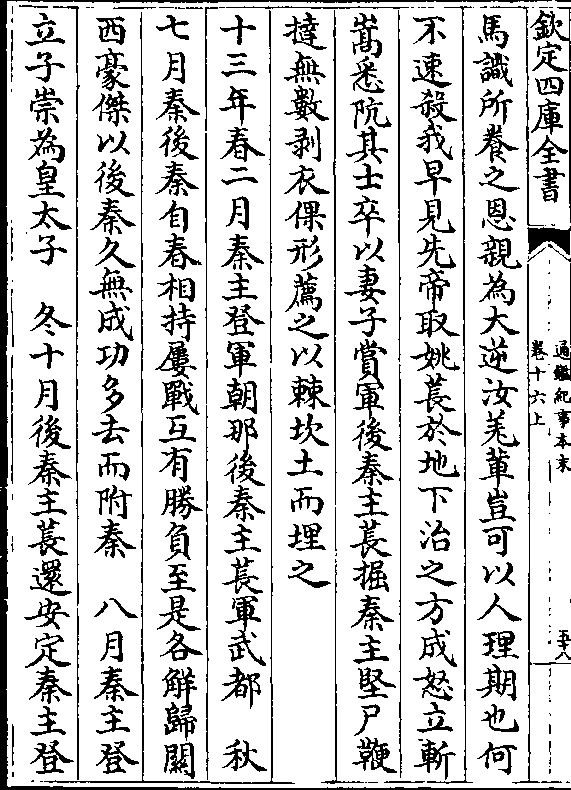 欽定四庫全書
通鑑紀事本末
卷十六上
五十八
馬識所養之恩親為大逆汝羌輩豈可以人理期也何
不速殺我早見先帝取姚萇於地下治之方成怒立斬
嵩悉阬其士卒以妻子賞軍後秦主萇掘秦主堅尸鞭
撻無數剥衣倮形薦之以棘坎土而埋之
十三年春二月秦主登軍朝那後秦主萇軍武都　秋
七月秦後秦自春相持屢戰互有勝負至是各解歸關
西豪傑以後秦久無成功多去而附秦　八月秦主登
立子崇為皇太子　冬十月後秦主萇還安定秦主登